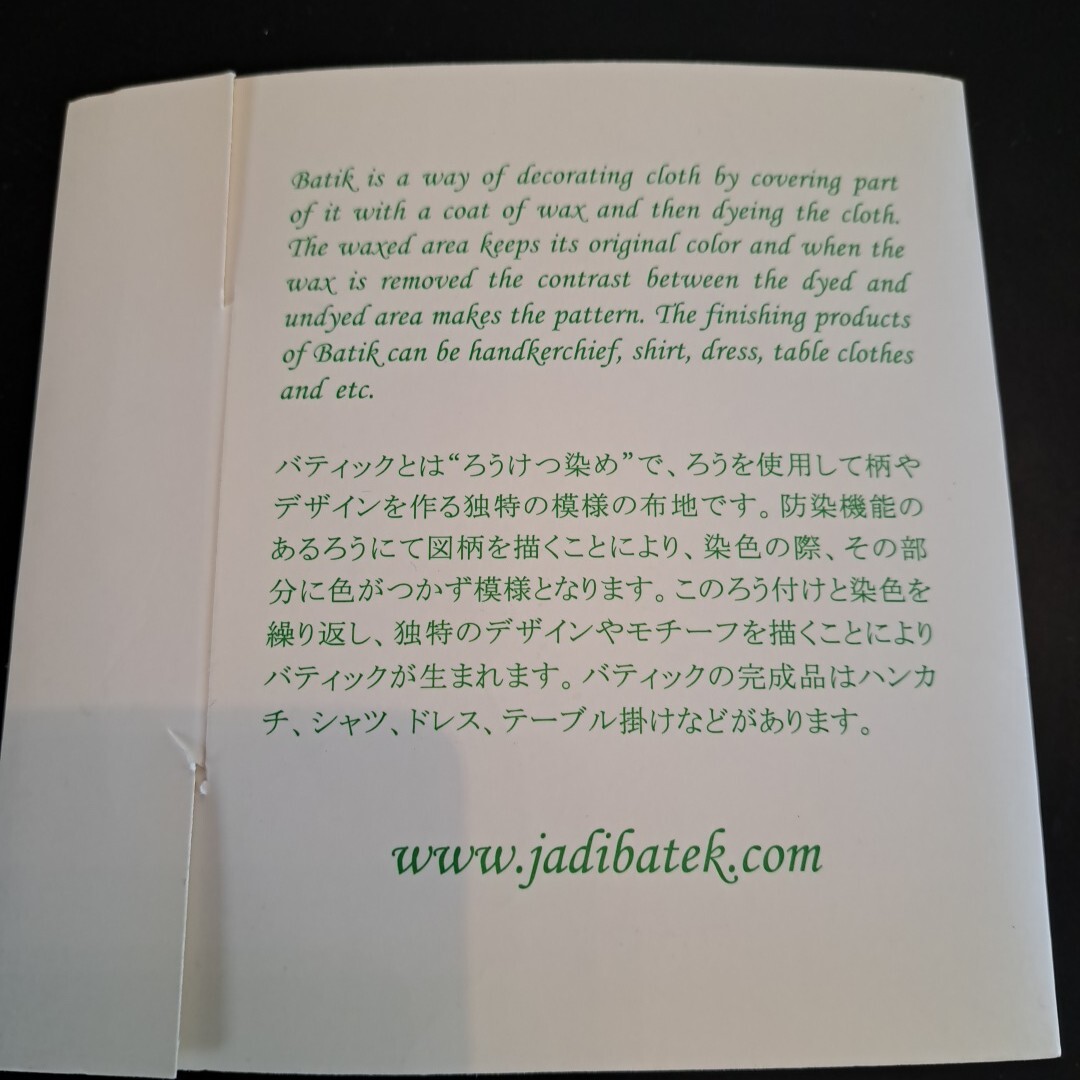 Batik is a way of decorating cloth by covering part
of it with a coat of wax and then dyeing the cloth.
The waxed area keeps its original color and when the
wax is removed the contrast between the dyed and
undyed area makes the pattern. The finishing products
of Batik can be handkerchief, shirt, dress, table clothes
and etc.
バティックとは“ろうけつ染め”で、ろうを使用して柄や
デザインを作る独特の模様の布地です。防染機能の
あるろうにて図柄を描くことにより、染色の際、その部
分に色がつかず模様となります。このろう付けと染色を
繰り返し、独特のデザインやモチーフを描くことにより
バティックが生まれます。バティックの完成品はハンカ
チ、シャツ、ドレス、テーブル掛けなどがあります。
www.jadibatek.com